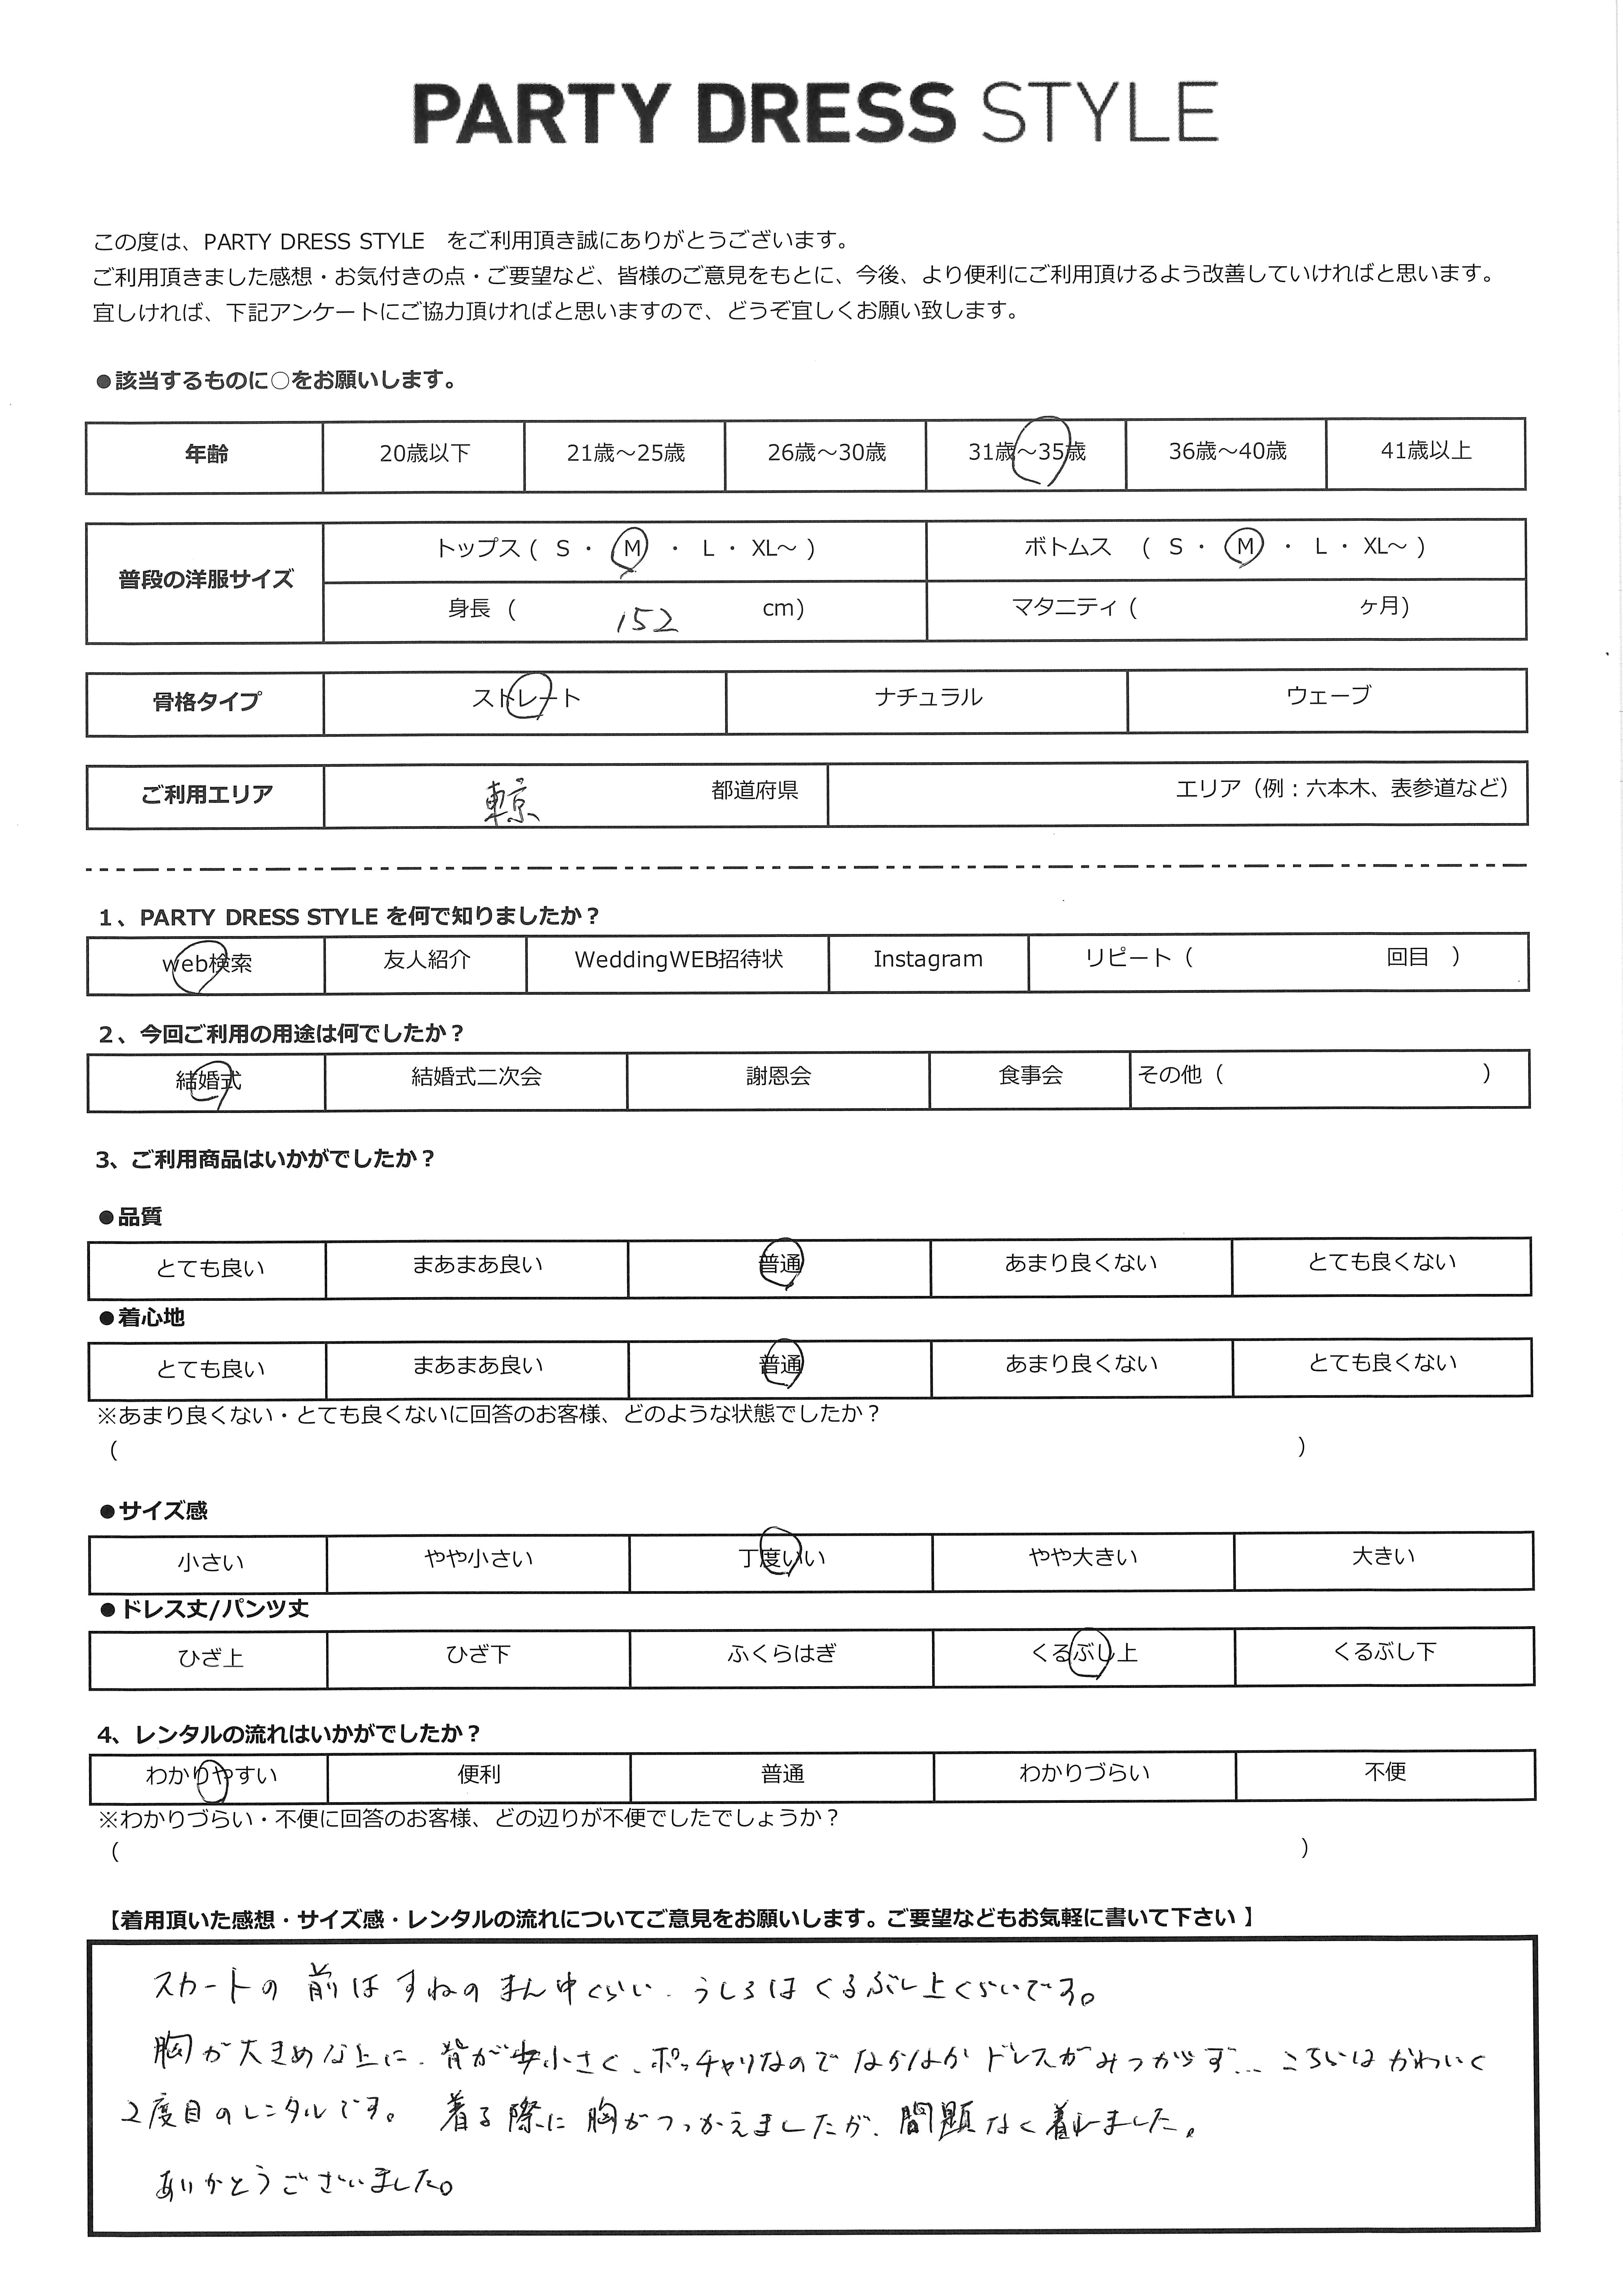 PARTY DRESS STYLE
この度は、PARTY DRESS STYLE　をご利用頂き誠にありがとうございます。
ご利用頂きました感想・お気付きの点・ご要望など、皆様のご意見をもとに、今後、より便利にご利用頂けるよう改善していければと思います。
宜しければ、下記アンケートにご協力頂ければと思いますので、どうぞ宜しくお願い致します。
●該当するものに○をお願いします。
年齢 20歳以下 21歳～25歳 26歳～30歳 31歳～35歳 36歳～40歳 41歳以上
普段の洋服サイズ
トップス ( S ・ M ・ L ・ XL～ ) ボトムス ( S ・ M ・ L ・ XL～ )
身長 ( 152 cm) マタニティ ( ヶ月)
骨格タイプ ストレート ナチュラル ウェーブ
ご利用エリア 東京 都道府県 エリア（例：六本木、表参道など）
1、PARTY DRESS STYLE を何で知りましたか？
web検索 友人紹介 WeddingWEB招待状 Instagram リピート（ 回目 ）
2、今回ご利用の用途は何でしたか？
結婚式 結婚式二次会 謝恩会 食事会 その他（ ）
3、ご利用商品はいかがでしたか？
●品質
とても良い まあまあ良い 普通 あまり良くない とても良くない
●着心地
とても良い まあまあ良い 普通 あまり良くない とても良くない
※あまり良くない・とても良くないに回答のお客様、どのような状態でしたか？
（ ）
●サイズ感
小さい やや小さい 丁度いい やや大きい 大きい
●ドレス丈/パンツ丈
ひざ上 ひざ下 ふくらはぎ くるぶし上 くるぶし下
4、レンタルの流れはいかがでしたか？
わかりやすい 便利 普通 わかりづらい 不便
※わかりづらい・不便に回答のお客様、どの辺りが不便でしたでしょうか？
（ ）
【着用頂いた感想・サイズ感・レンタルの流れについてご意見をお願いします。ご要望などもお気軽に書いて下さい】
スカートの前はすねのまん中くらい、うしろはくるぶし上くらいです。
胸が大きめな上に、背が小さく、ポッチャリなのでなかなかドレスがみつからず… こちらはかわいく
2度目のレンタルです。 着る際に胸がつっかえましたが、問題なく着れました。
ありがとうございました。